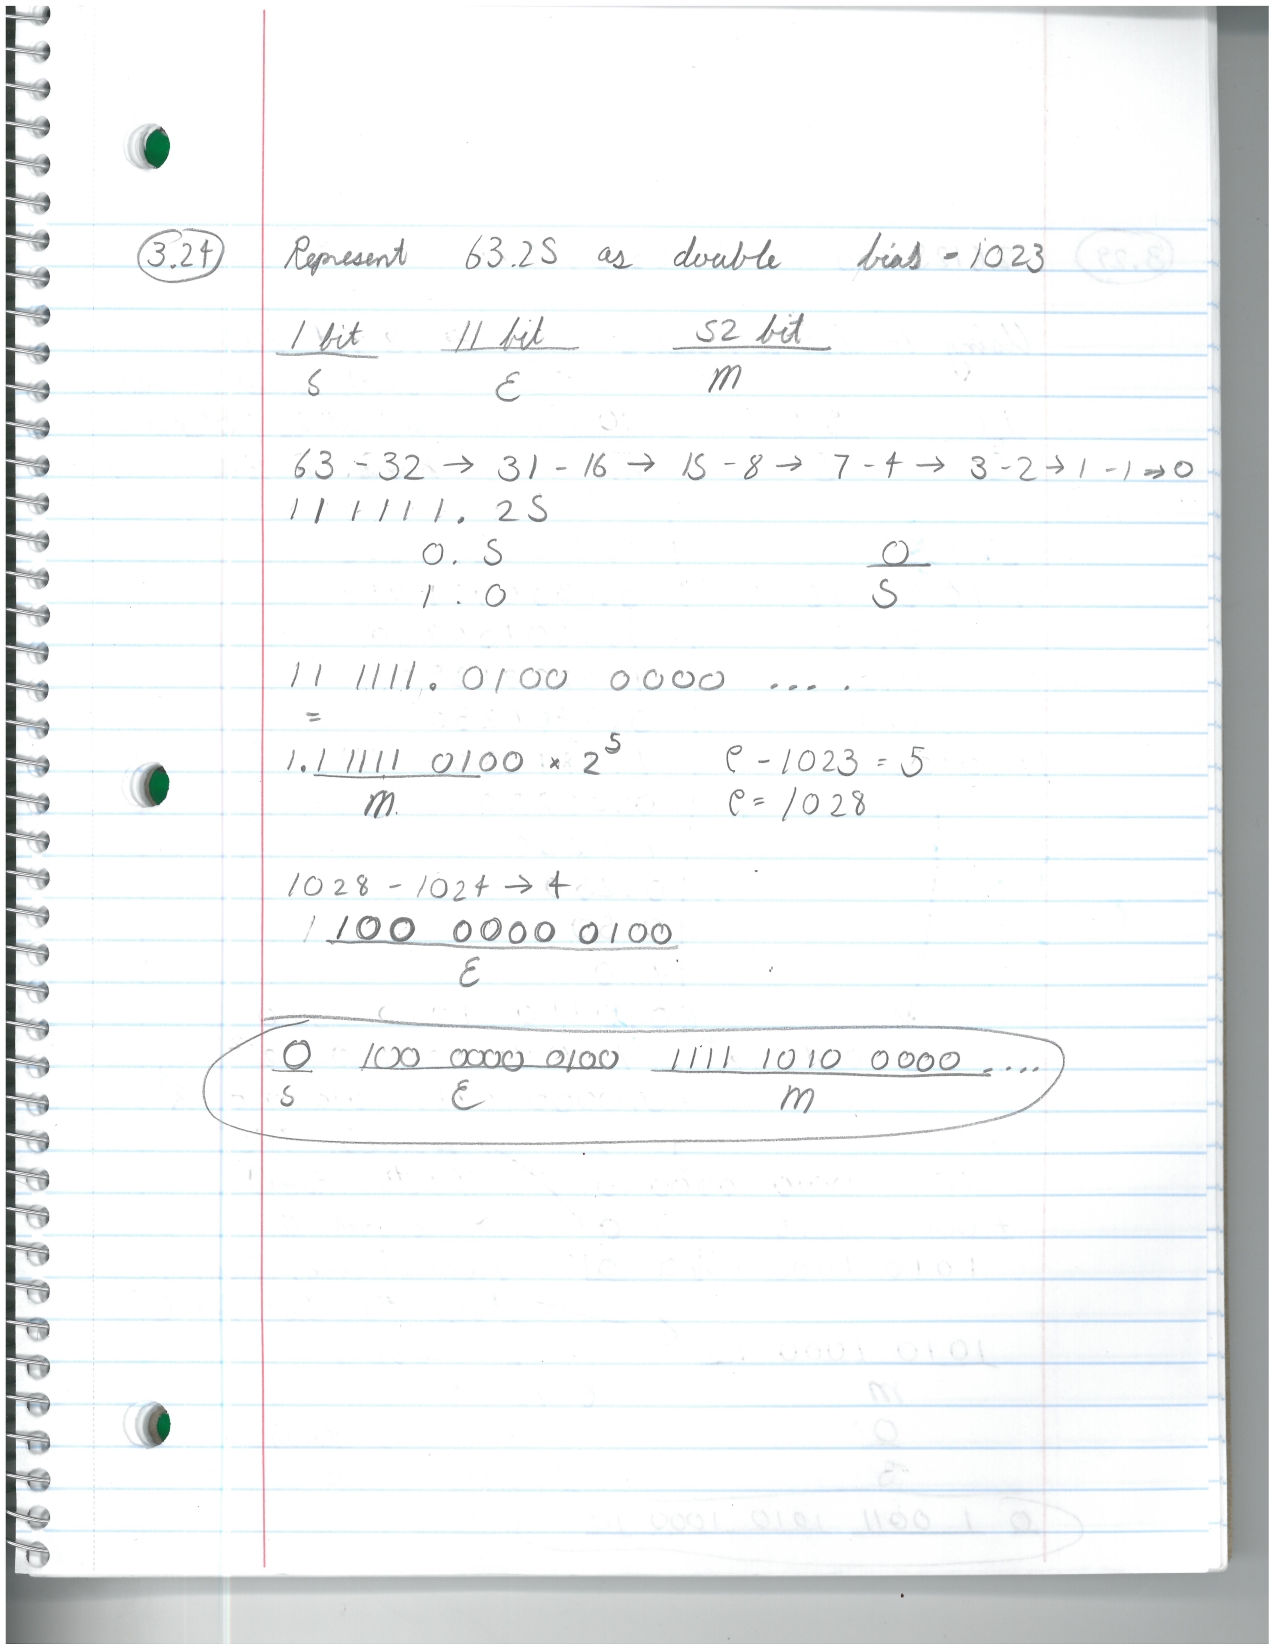 3.24 Represent 63.25 as double bias - 1023
1 bit 11 bit 52 bit
S E M
63 - 32 → 31 - 16 → 15 - 8 → 7 - 4 → 3 - 2 → 1 - 1 → 0
111111.25
0.5 0
1.0 S
11 1111.0100 0000 .....
=
1.1 1111 0100 × 2^5 e - 1023 = 5
M. e = 1028
1028 - 1024 → 4
100 0000 0100
E
0 100 0000 0100 1111 1010 0000 ....
S E M